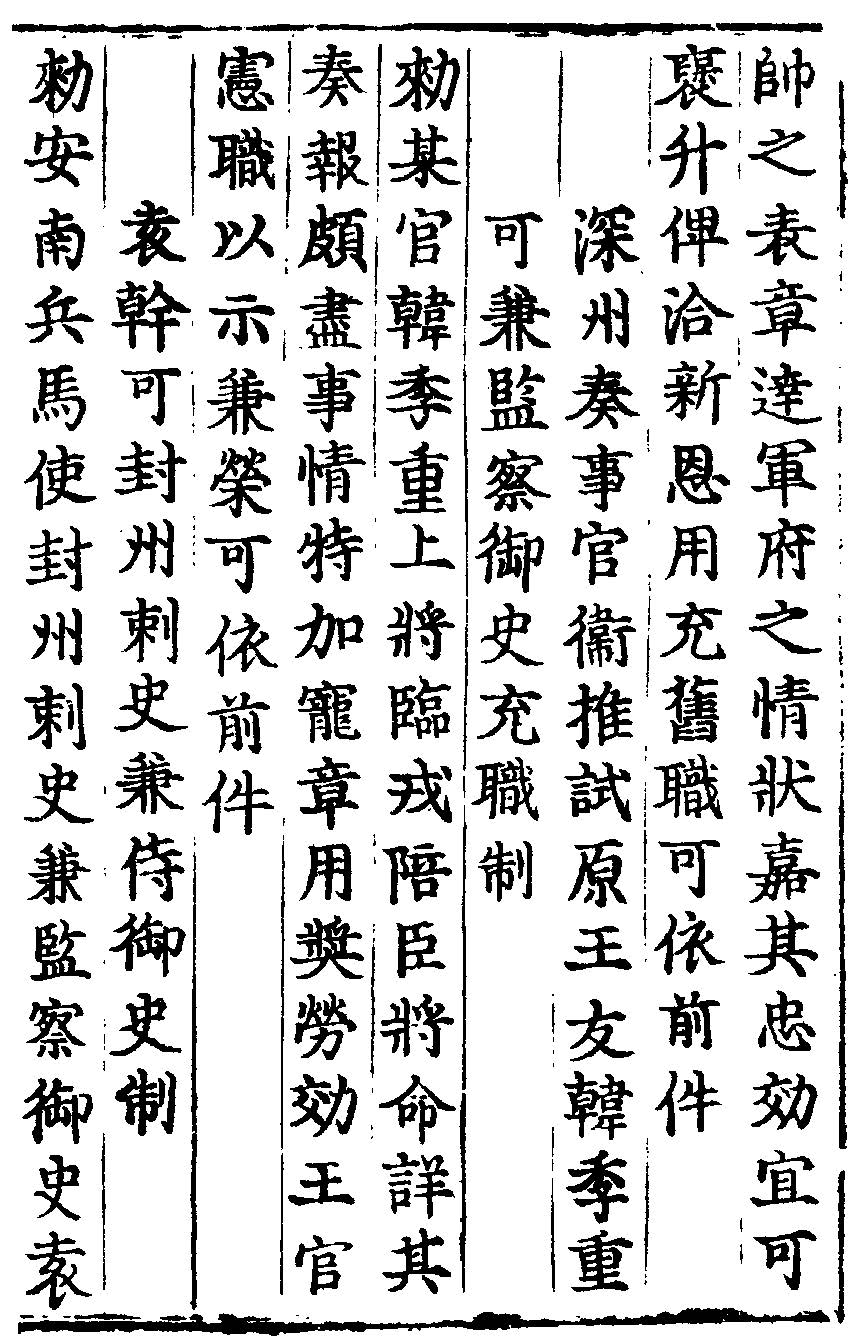 帥之表章達軍府之情狀嘉其忠効宜可
襃升俾洽新恩用充舊職可依前件
深州奏事官衞推試原王友韓季重
可兼監察御史充職制
勑某官韓季重上將臨戎陪臣將命詳其
奏報頗盡事情特加寵章用奬勞効王官
憲職以示兼榮可依前件
袁幹可封州刺史兼侍御史制
勑安南兵馬使封州刺史兼監察御史袁